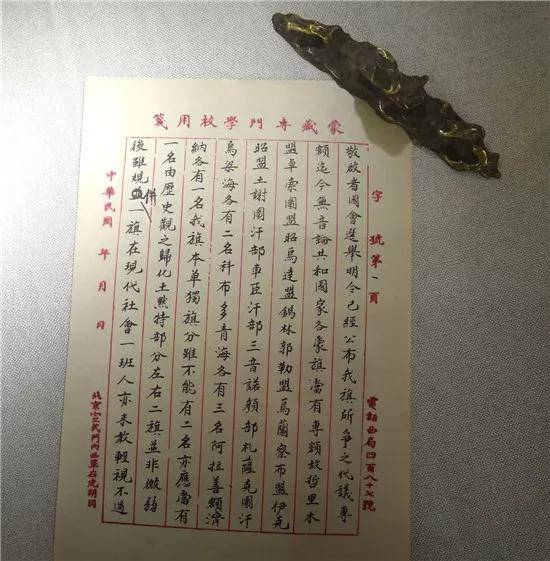 蒙藏專門學校用箋
字 號第一頁
電話西局四百八十七號
敬啟者國會選舉明令已經公布我旗所爭之代議專
額迄今無音論共和國家各蒙旗當有專額故哲里木
盟卓索圖盟昭烏達盟錫林郭勒盟烏蘭察布盟伊克
昭盟土謝圖汗部車臣汗部三音諾顏部札薩克圖汗
烏梁海各有二名科布多青海各有三名阿拉善額濟
納各有一名我旗本單獨旗分雖不能有二名亦應當有
一名由歷史觀之歸化土默特部分左右二旗並非微弱
後雖規併一旗在現代社會一班人亦未敢輕視不過
中華民國 年 月 日
北京宣武門內西單石虎胡同